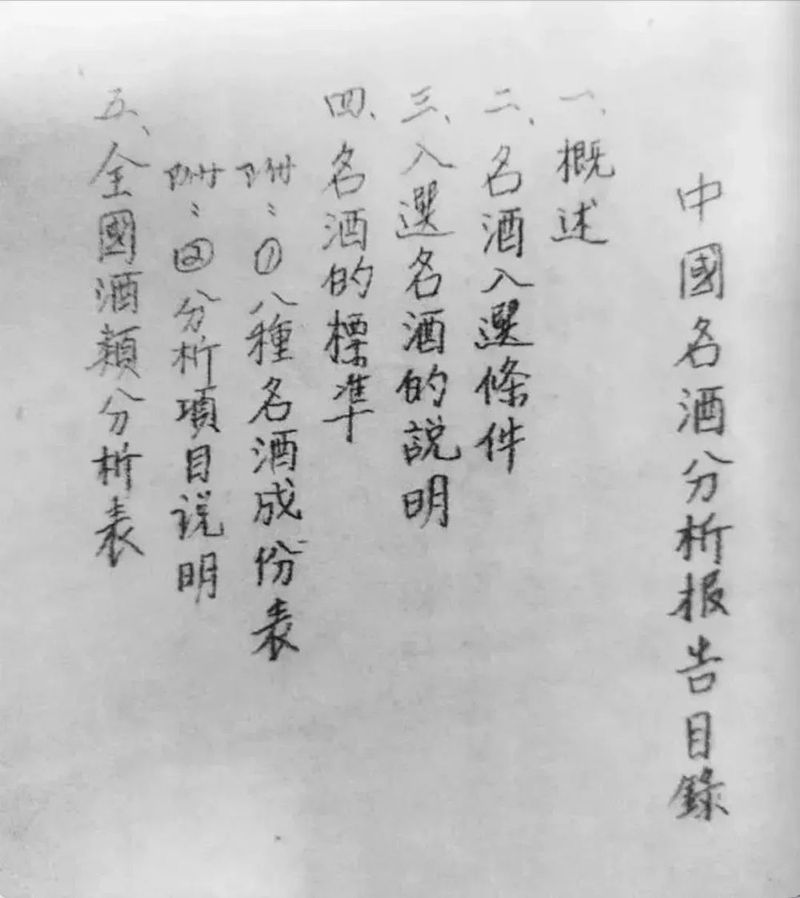 中國名酒分析报告目錄
一、概述
二、名酒入選條件
三、入選名酒的説明
四、名酒的標準
附：①八種名酒成份表
附：②分析項目说明
五、全國酒類分析表